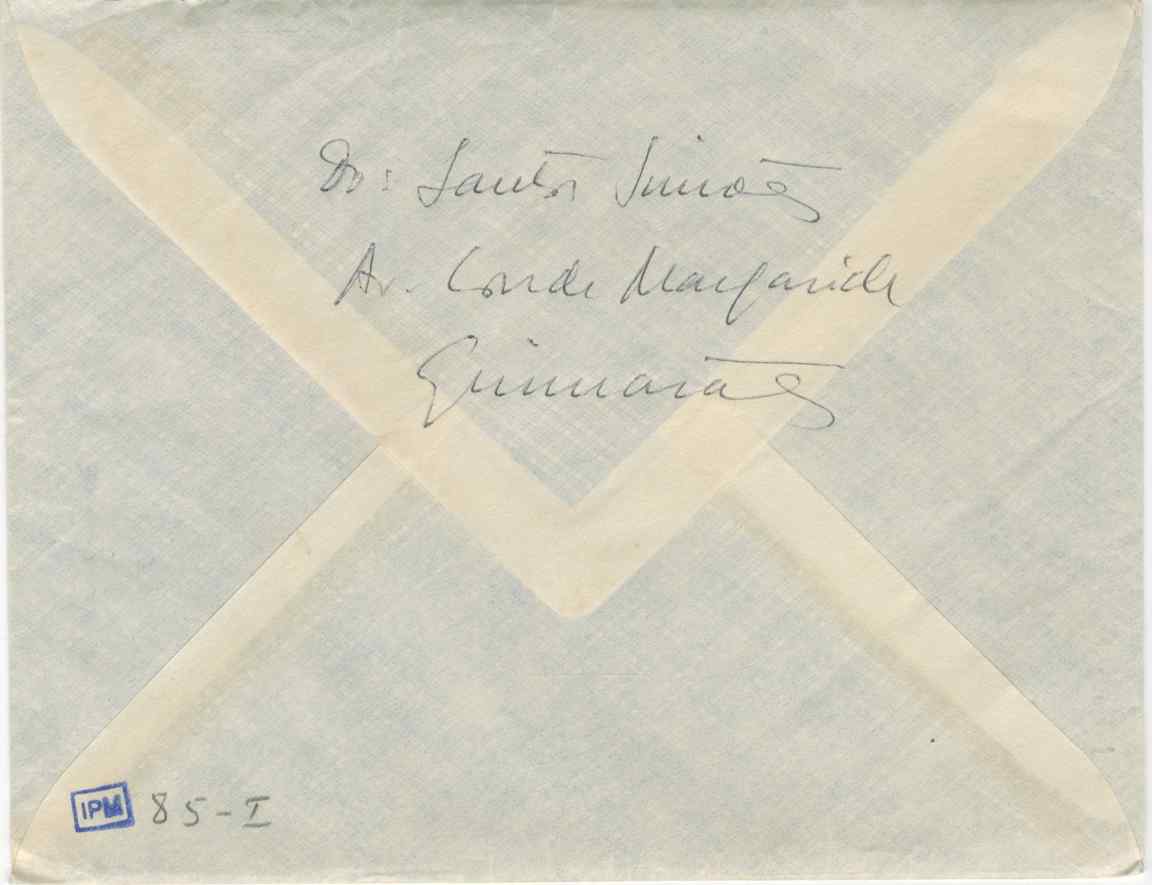 Dr: Santos Simões
Av. Conde Margaride
Guimarães
IPM 85-I